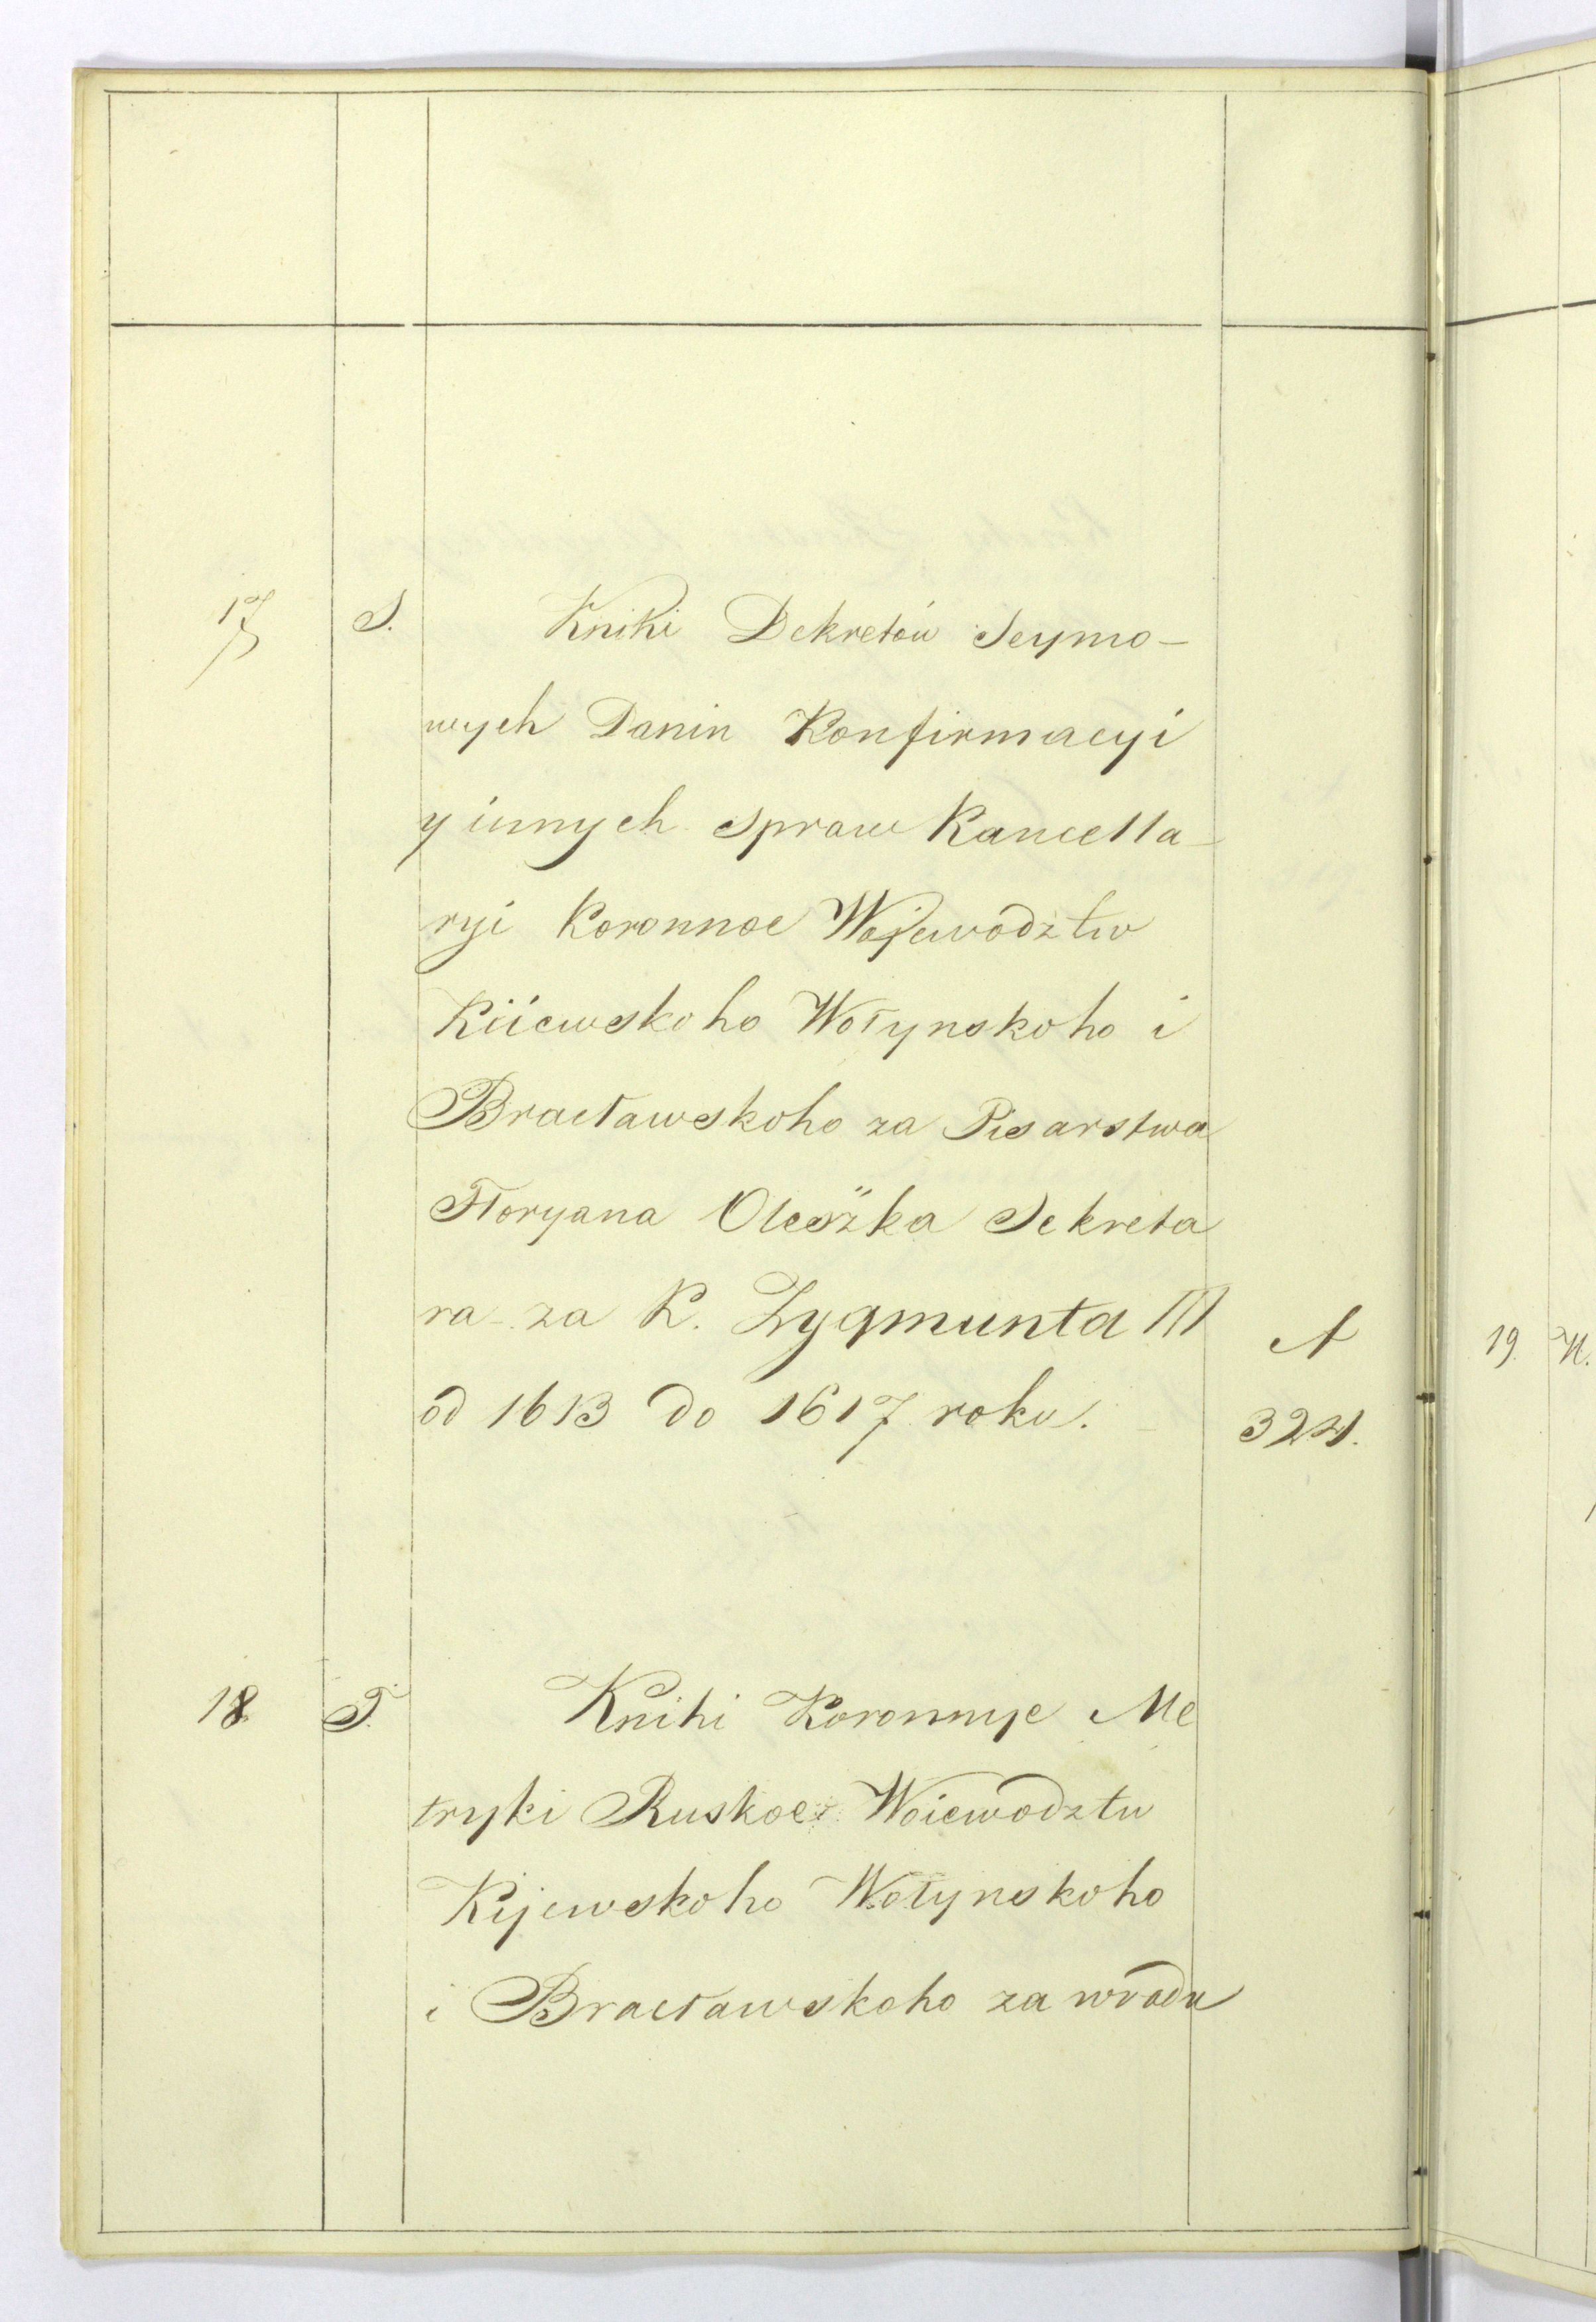 17 S. Kniki Dekretów Seymo-
wych Danin Konfirmacyi
y innych spraw Kancella-
ryi Koronnoe Wojewodztw
Kiiewskoho Wołynskoho i
Bracławskoho za Pisarstwa
Floryana Oleszka Sekreta
ra za K. Zygmunta III A
od 1613 do 1617 roku. 324.
18 T. Knihi Koronnye Me
tryki Ruskoe Woiewodztw
Kijewskoho Wołynskoho
i Bracławskoho za wradu
19.